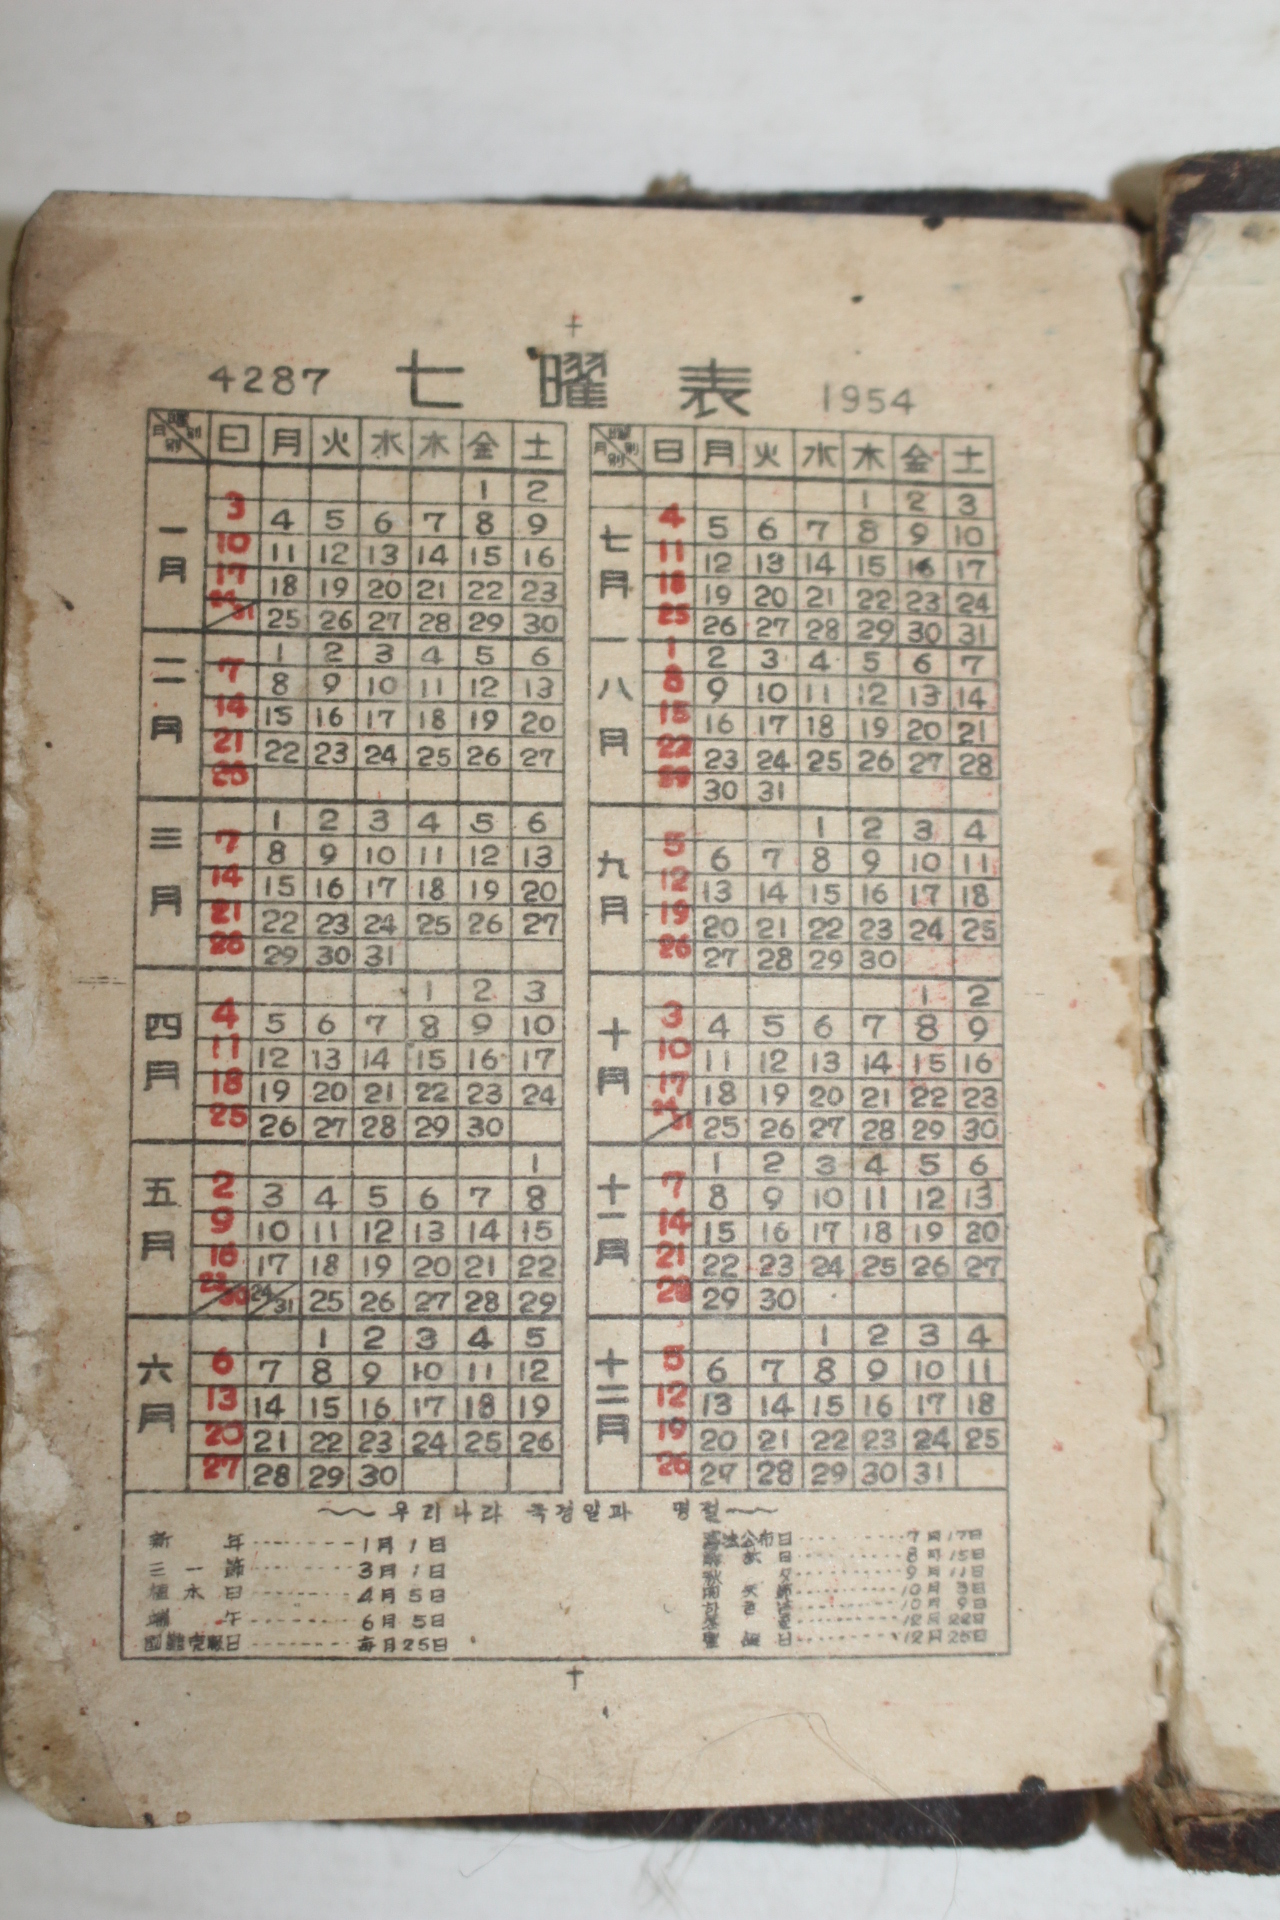 4287 七曜表 1954
月別 曜別 日 月 火 水 木 金 土
一月
1 2
3 4 5 6 7 8 9
10 11 12 13 14 15 16
17 18 19 20 21 22 23
24/31 25 26 27 28 29 30
二月
1 2 3 4 5 6
7 8 9 10 11 12 13
14 15 16 17 18 19 20
21 22 23 24 25 26 27
28
三月
1 2 3 4 5 6
7 8 9 10 11 12 13
14 15 16 17 18 19 20
21 22 23 24 25 26 27
28 29 30 31
四月
1 2 3
4 5 6 7 8 9 10
11 12 13 14 15 16 17
18 19 20 21 22 23 24
25 26 27 28 29 30
五月
1
2 3 4 5 6 7 8
9 10 11 12 13 14 15
16 17 18 19 20 21 22
23/30 24/31 25 26 27 28 29
六月
1 2 3 4 5
6 7 8 9 10 11 12
13 14 15 16 17 18 19
20 21 22 23 24 25 26
27 28 29 30
月別 曜別 日 月 火 水 木 金 土
七月
1 2 3
4 5 6 7 8 9 10
11 12 13 14 15 16 17
18 19 20 21 22 23 24
25 26 27 28 29 30 31
八月
1 2 3 4 5 6 7
8 9 10 11 12 13 14
15 16 17 18 19 20 21
22 23 24 25 26 27 28
29 30 31
九月
1 2 3 4
5 6 7 8 9 10 11
12 13 14 15 16 17 18
19 20 21 22 23 24 25
26 27 28 29 30
十月
1 2
3 4 5 6 7 8 9
10 11 12 13 14 15 16
17 18 19 20 21 22 23
24/31 25 26 27 28 29 30
十一月
1 2 3 4 5 6
7 8 9 10 11 12 13
14 15 16 17 18 19 20
21 22 23 24 25 26 27
28 29 30
十二月
1 2 3 4
5 6 7 8 9 10 11
12 13 14 15 16 17 18
19 20 21 22 23 24 25
26 27 28 29 30 31
우리나라 국경일과 명절
新年 1月1日
三一節 3月1日
植木日 4月5日
端午 6月5日
日 每月25日
憲法公布日 7月17日
日 8月15日
秋夕 9月11日
開天節 10月3日
10月9日
冬至 12月22日
聖誕日 12月25日